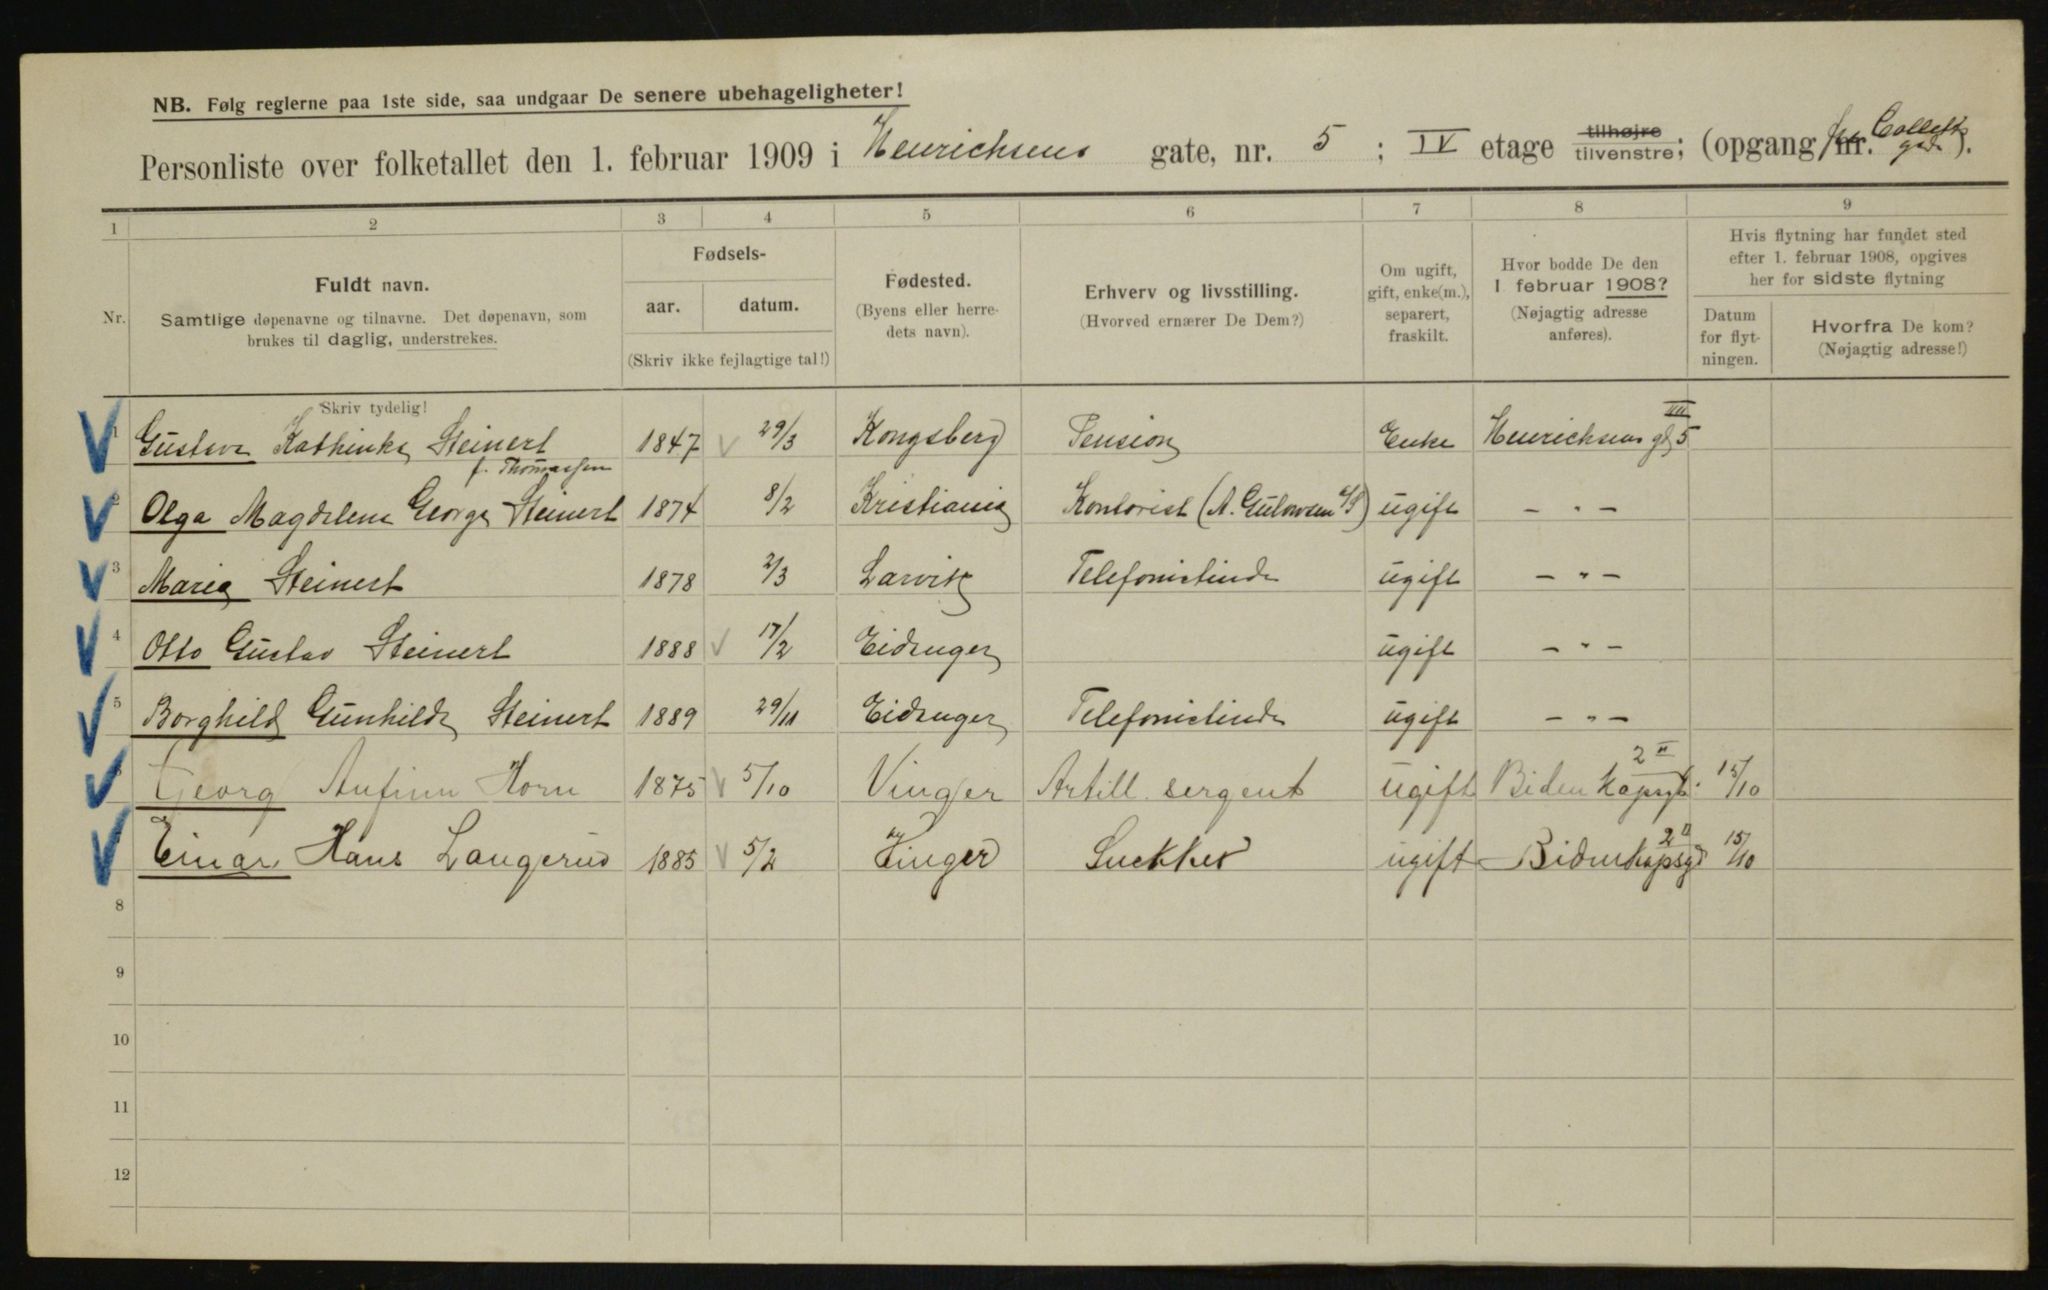 NB. Følg reglerne paa 1ste side, saa undgaar De senere ubehageligheter!
Personliste over folketallet den 1. februar 1909 i Henrichsens gate, nr. 5 ; IV etage tilhøjre tilvenstre; (opgang nr. fra Colletts gade).
1 2 3 4 5 6 7 8 9
Nr.
Fuldt navn.
Samtlige døpenavne og tilnavne. Det døpenavn, som
brukes til daglig, understrekes.
Skriv tydelig!
Fødsels-
aar. datum.
(Skriv ikke fejlagtige tal!)
Fødested.
(Byens eller herre-
dets navn).
Erhverv og livsstilling.
(Hvorved ernærer De Dem?)
Om ugift,
gift, enke(m.),
separert,
fraskilt.
Hvor bodde De den
1 februar 1908?
(Nøjagtig adresse
anføres).
Hvis flytning har fundet sted
efter 1. februar 1908, opgives
her for sidste flytning
Datum
for flyt-
ningen.
Hvorfra De kom?
(Nøjagtig adresse!)
1 Gustava Kathinka Steinert 1847 29/3 Kongsberg Pension Enke Henrichsens gt 5 IIII
f. Thomassen
2 Olga Magdalena Georga Steinert 1874 8/2 Kristiania Kontorist (A. Gulowsen A/S) ugift – " –
3 Maria Steinert 1878 2/3 Larvik Telefonistinde ugift – " –
4 Otto Gustav Steinert 1888 17/2 Eidanger ugift – " –
5 Borghild Gunhilda Steinert 1889 29/11 Eidanger Telefonistinde ugift – " –
6 Georg Anfinn Horn 1875 5/10 Vinger Artill. sergent ugift Bidenkapsgt. 2 II 15/10
Einar Hans Langerud 1885 5/2 Vinger Snekker ugift Bidenkapsgt 2 II 15/10
8
9
10
11
12